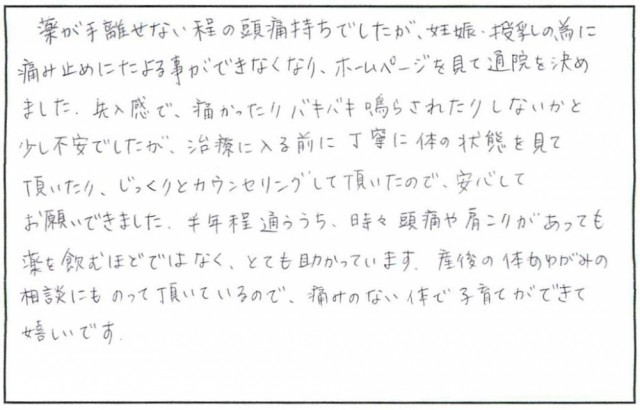 薬が手離せない程の頭痛持ちでしたが、妊娠・授乳の為に
痛み止めにたよる事ができなくなり、ホームページを見て通院を決め
ました。先入感で、痛かったりバキバキ鳴らされたりしないかと
少し不安でしたが、治療に入る前に丁寧に体の状態を見て
頂いたり、じっくりとカウンセリングして頂いたので、安心して
お願いできました。半年程通ううち、時々頭痛や肩こりがあっても
薬を飲むほどではなく、とても助かっています。産後の体のゆがみの
相談にものって頂いているので、痛みのない体で子育てができて
嬉しいです。